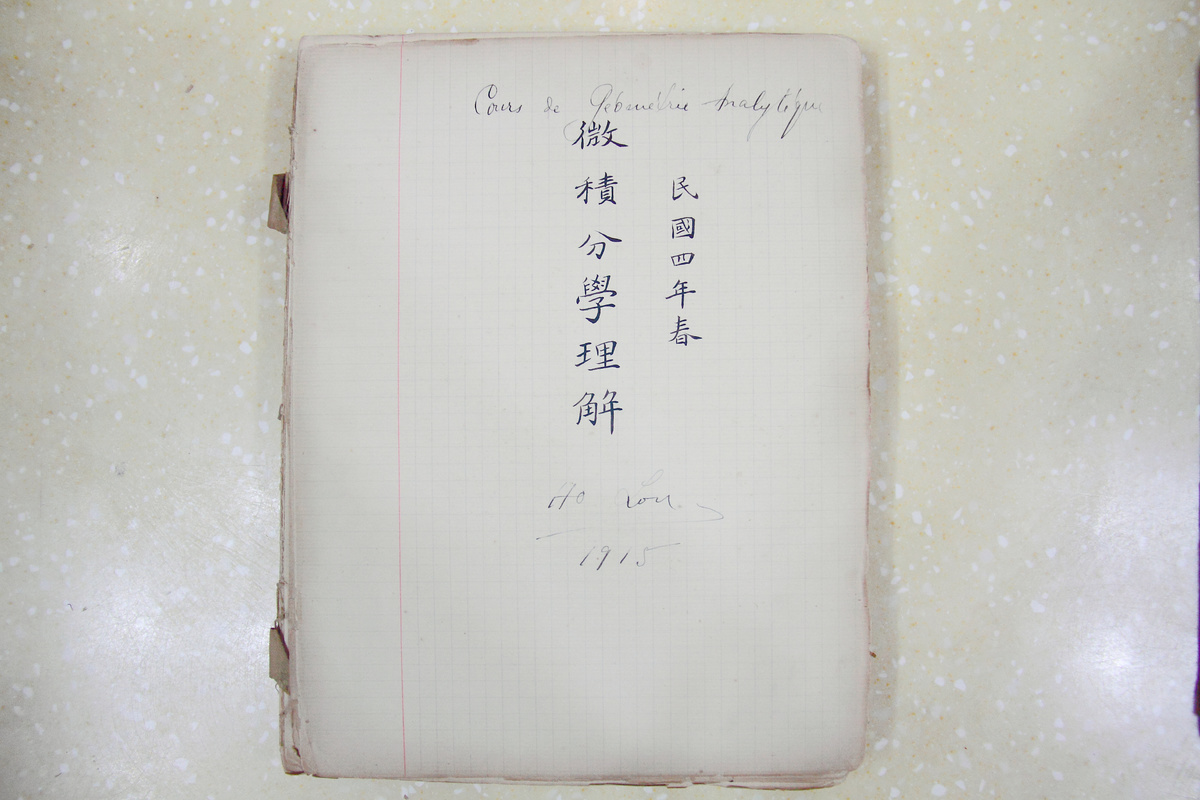 Cours de Géométrie Analytique
民國四年春
微積分學理解
Ho Lou.
1915